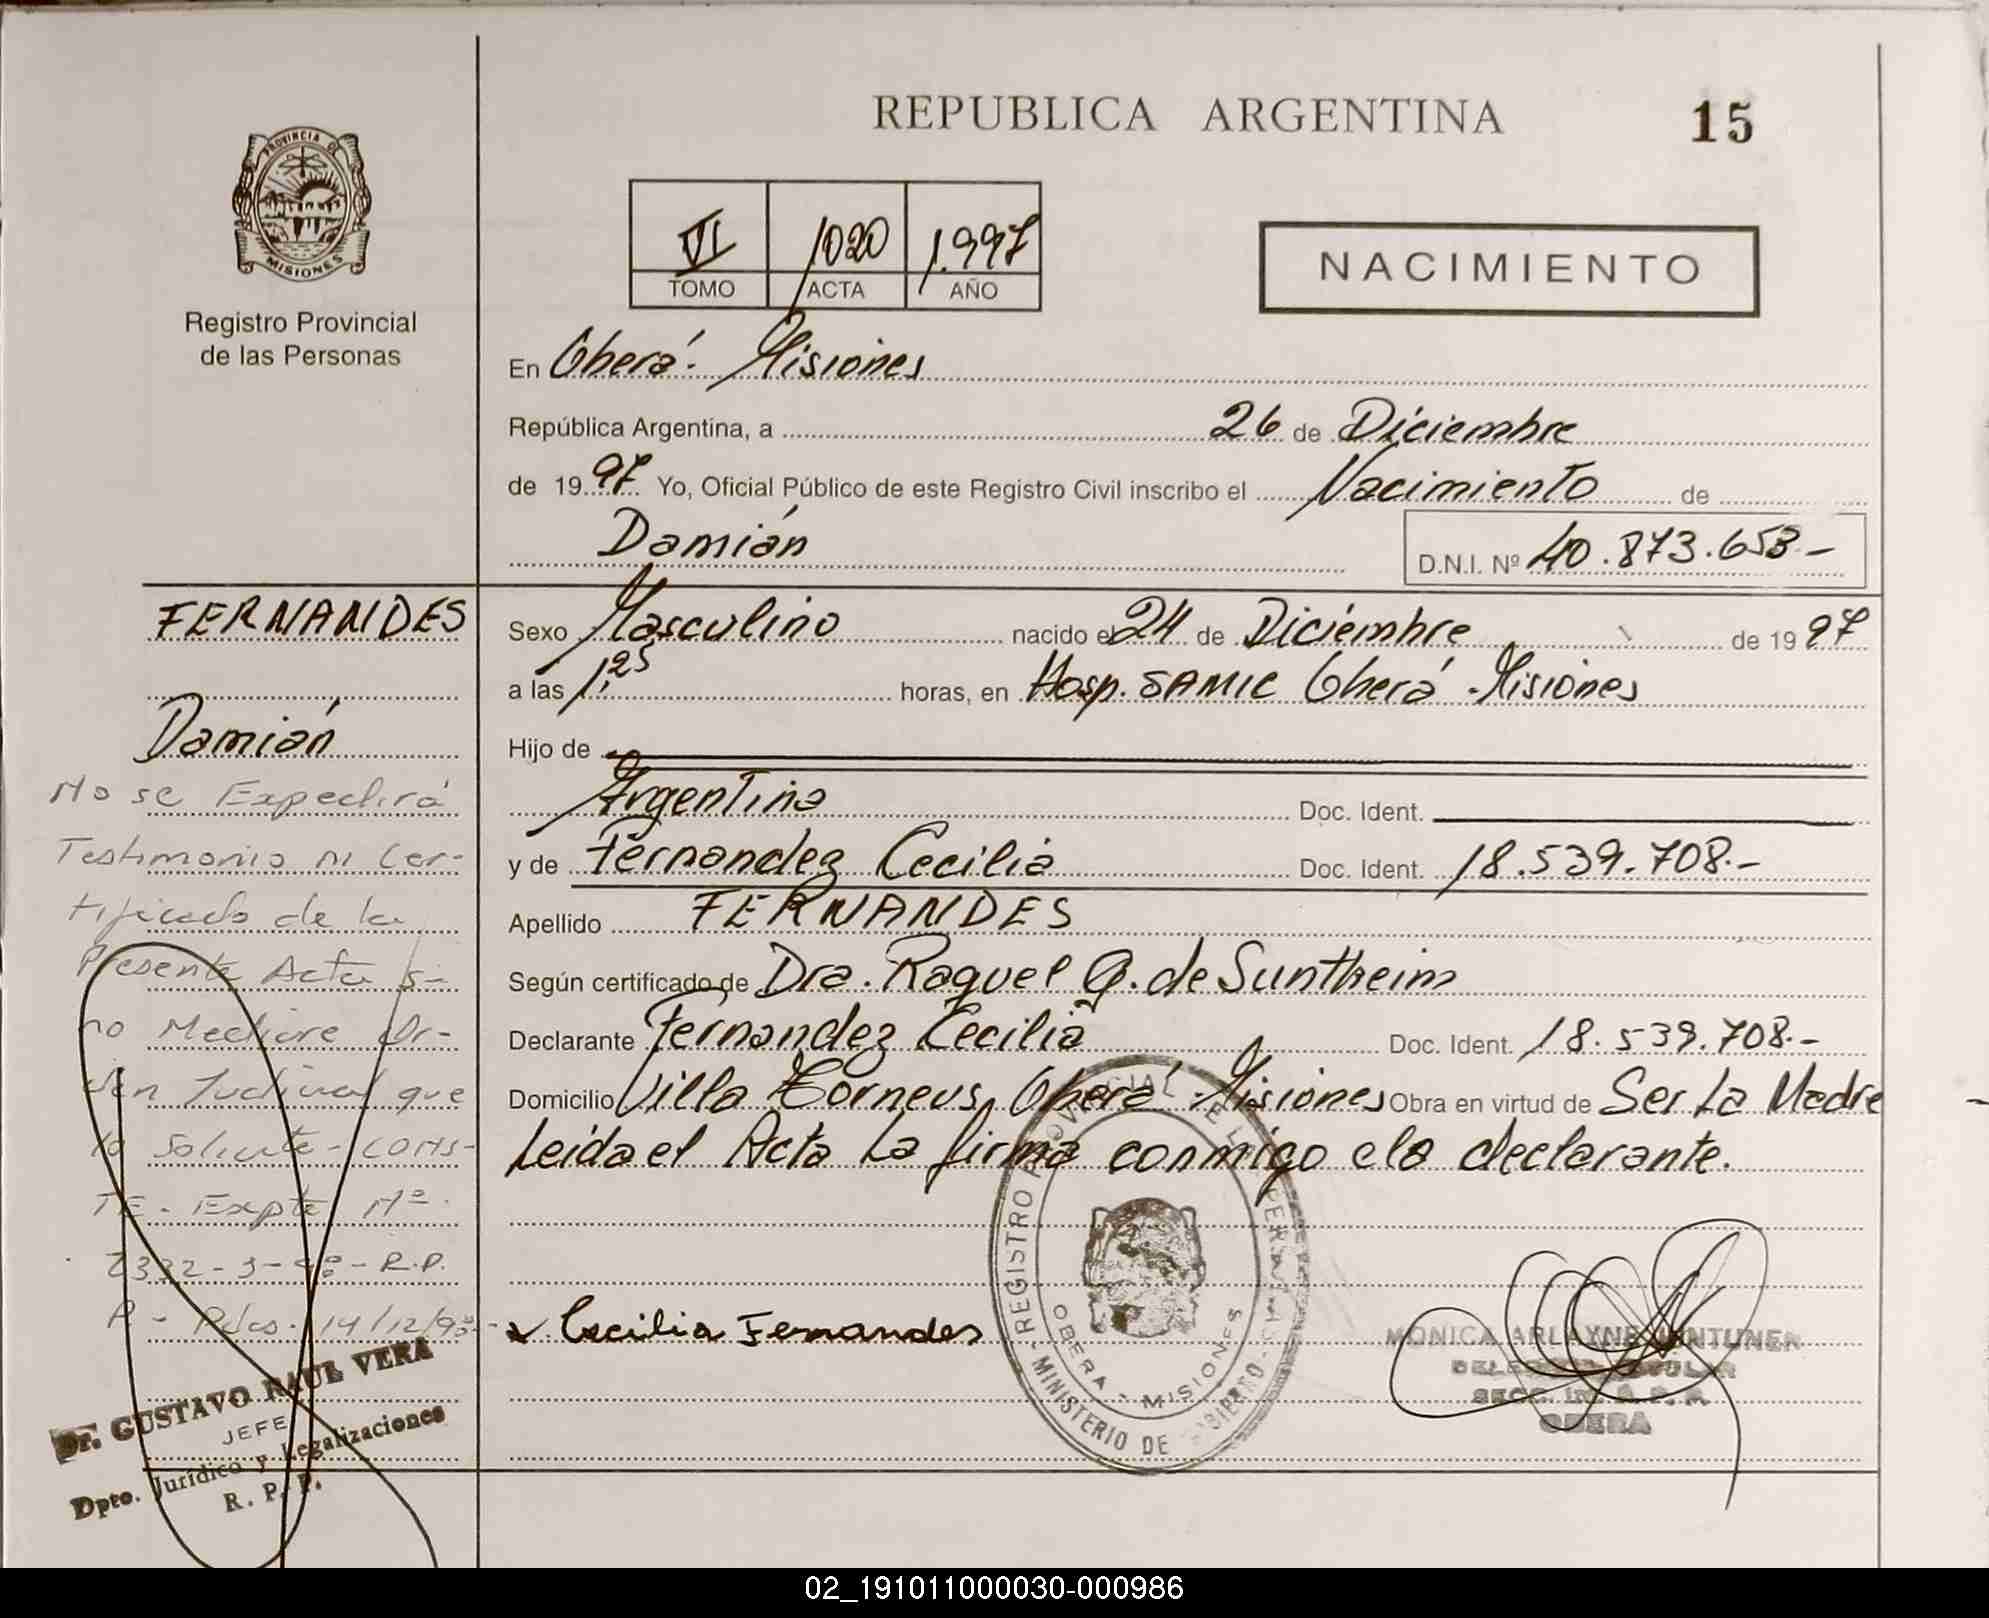 REPUBLICA ARGENTINA
15
PROVINCIA DE
MISIONES
Registro Provincial
de las Personas
VI 1020 1.997
TOMO ACTA AÑO
NACIMIENTO
En Oberá - Misiones
República Argentina, a 26 de Diciembre
de 19 97 Yo, Oficial Público de este Registro Civil inscribo el Nacimiento de
Damián
D.N.I. Nº 40.873.653.-
FERNANDES
Damián
Sexo Masculino nacido el 24 de Diciembre de 19 97
a las 1,25 horas, en Hosp. SAMIC Oberá - Misiones
Hijo de
Argentina Doc. Ident.
y de Fernandez Cecilia Doc. Ident. 18.539.708.-
Apellido FERNANDES
Según certificado de Dra. Raquel G. de Suntheim
Declarante Fernandez Cecilia Doc. Ident. 18.539.708.-
Domicilio Villa Torneus, Oberá - Misiones Obra en virtud de Ser La Madre
Leída el Acta La firma conmigo ela declarante.
No se Expedirá
Testimonio ni Cer-
tificado de la
Presente Acta si-
no Mediare Or-
den Judicial que
lo Solicite - CONS-
TE - Expte Nº
R.P.
P - Pdas. 14/12/98
Dr. GUSTAVO RAUL VERA
JEFE
Dpto. Jurídico y Legalizaciones
R. P. P.
Cecilia Fernandes
REGISTRO PROVINCIAL DE LAS PERSONAS
MINISTERIO DE GOBIERNO
OBERA - MISIONES
MONICA ARLAYNE
OBERA
02_191011000030-000986